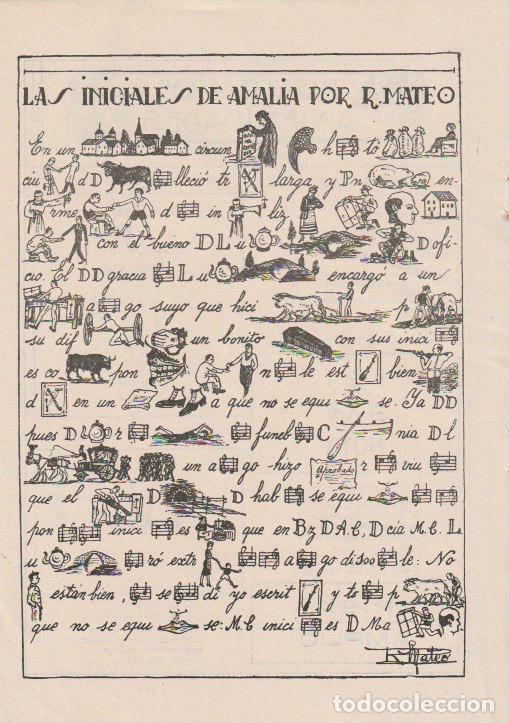 LAS INICIALES DE AMALIA POR R. MATEO
En un circun h to
ciu d D lleció tr larga y Pn en-
rme d in liz
con el bueno D L u D ofi-
cio. El D D gracia L u encargó a un
a go suyo que hici p
su dif un bonito con sus inici
es co pon n le est bien
d en un a que no se equi se. Ya D D
pues D r funeb C nia D l
un a go hizo Aprobado r inu
que el D D hab se equi
pon inici es que en Bz D A.C, D cia M.C. L
u ró extr a go disoo le: No
están bien, se di yo escrit y to p
que no se equi se: M C inici es D Ma
R. Mateo
todocoleccion